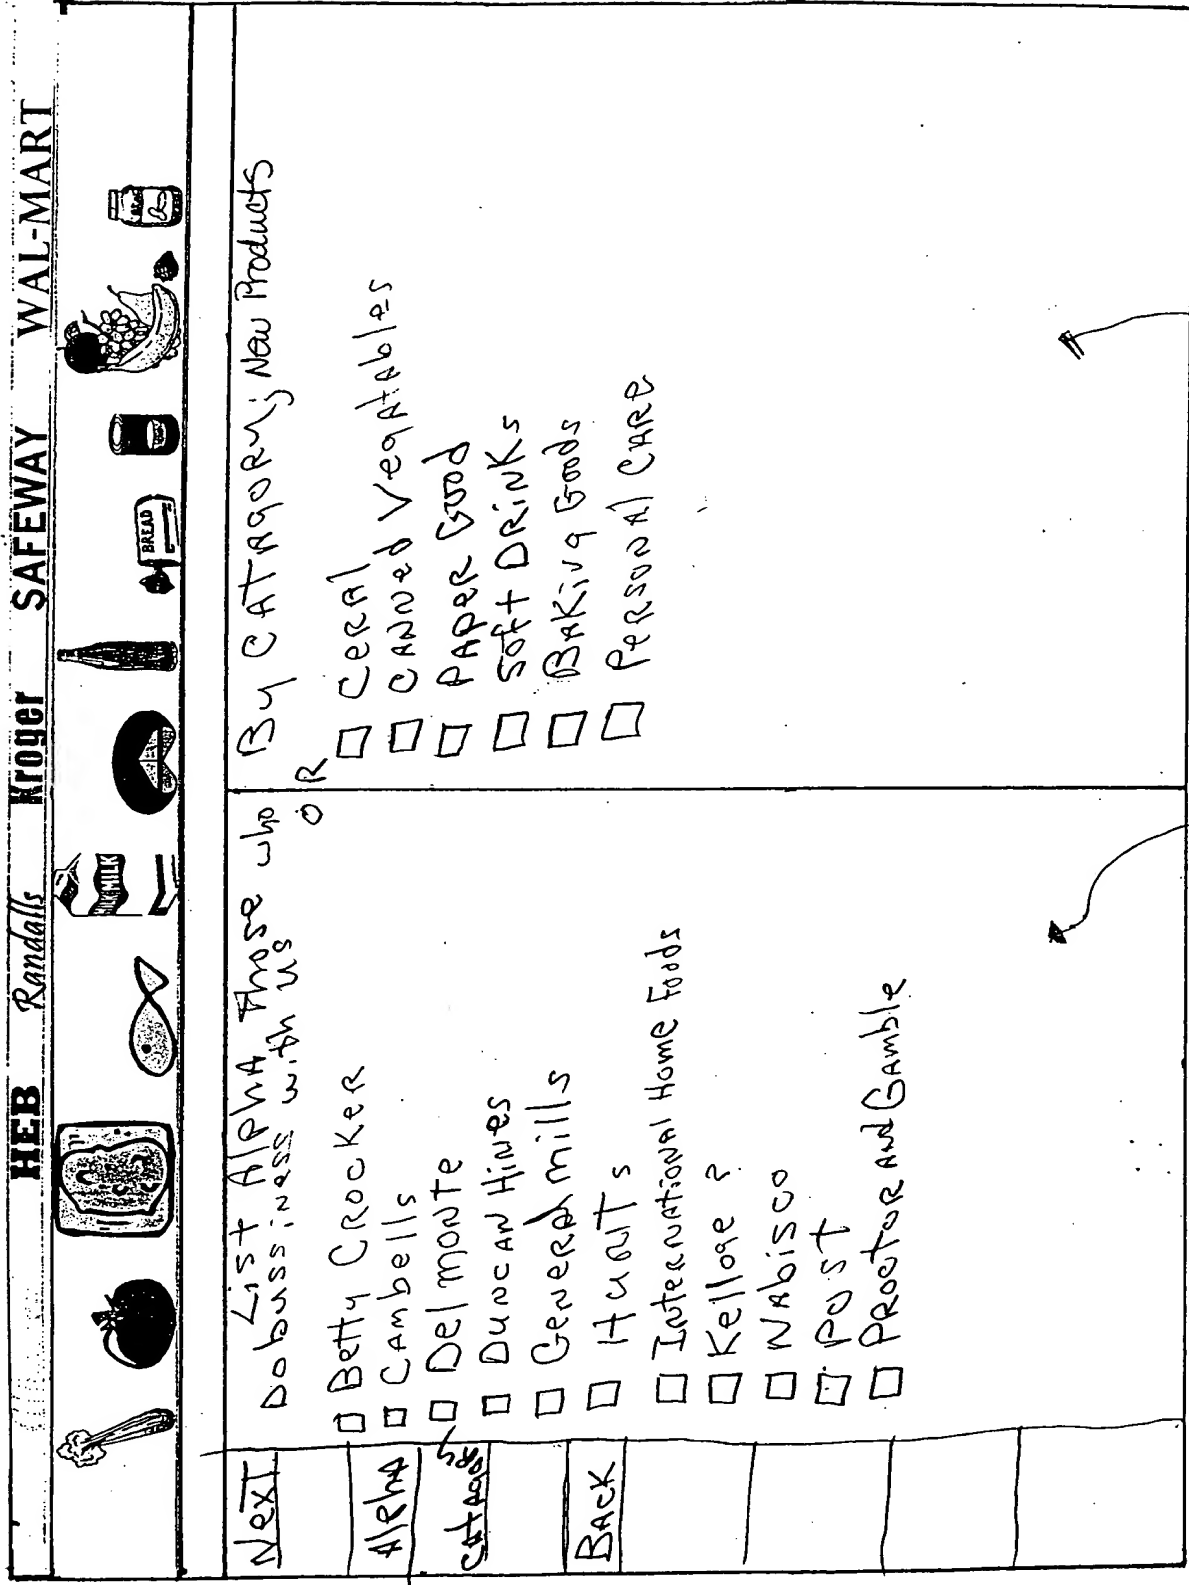 HEB Randalls Kroger SAFEWAY WAL-MART
MILK
BREAD
Next
Alpha
Catagory
Back
List Alpha Those who
Dobussiness with us
Betty Crocker
Cambells
Delmonte
Duncan Hines
General Mills
Hunts
International Home Foods
Kelloge ?
Nabisco
Post
Proctor and Gamble
OR
By Catagory; New Products
Ceral
Canned Vegatables
Paper Good
Soft Drinks
Baking Goods
Personal Care